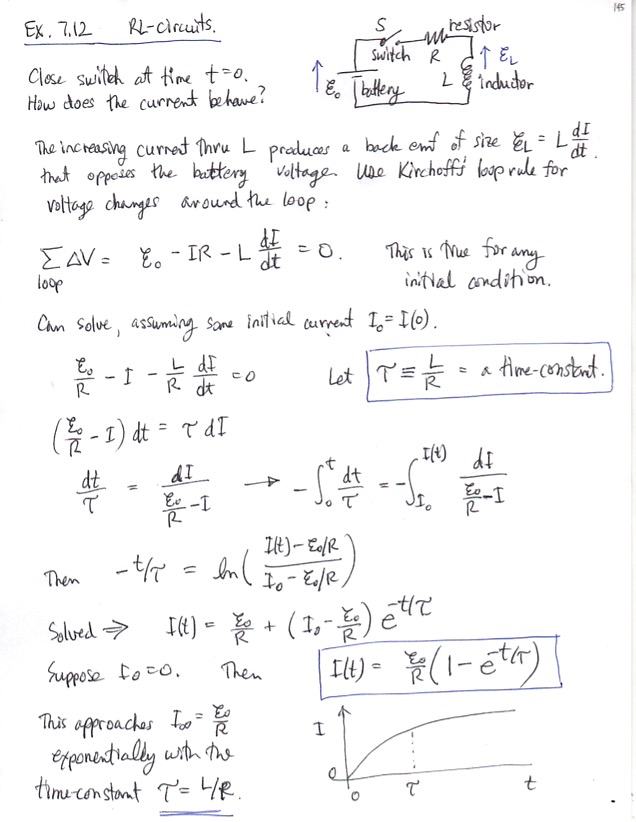 145
Ex. 7.12 RL-circuits.
S
resistor
switch R
ℰ_L
ℰ₀ battery L inductor
Close switch at time t=0.
How does the current behave?
The increasing current thru L produces a back emf of size ℰ_L = L dI/dt.
that opposes the battery voltage. Use Kirchoff's loop rule for
voltage changes around the loop:
∑ ΔV = ℰ₀ - IR - L dI/dt = 0. This is true for any
loop initial condition.
Can solve, assuming some initial current I₀ = I(0).
ℰ₀/R - I - L/R dI/dt = 0 Let τ ≡ L/R = a time-constant.
(ℰ₀/R - I) dt = τ dI
dt/τ = dI/(ℰ₀/R - I) → -∫₀^t dt/τ = -∫_{I₀}^{I(t)} dI/(ℰ₀/R - I)
Then -t/τ = ln( (I(t) - ℰ₀/R)/(I₀ - ℰ₀/R) )
Solved ⇒ I(t) = ℰ₀/R + (I₀ - ℰ₀/R) e^{-t/τ}
Suppose I₀ = 0. Then I(t) = ℰ₀/R (1 - e^{-t/τ})
This approaches I∞ = ℰ₀/R
exponentially with the
time-constant τ = L/R.
I
0
0 τ t